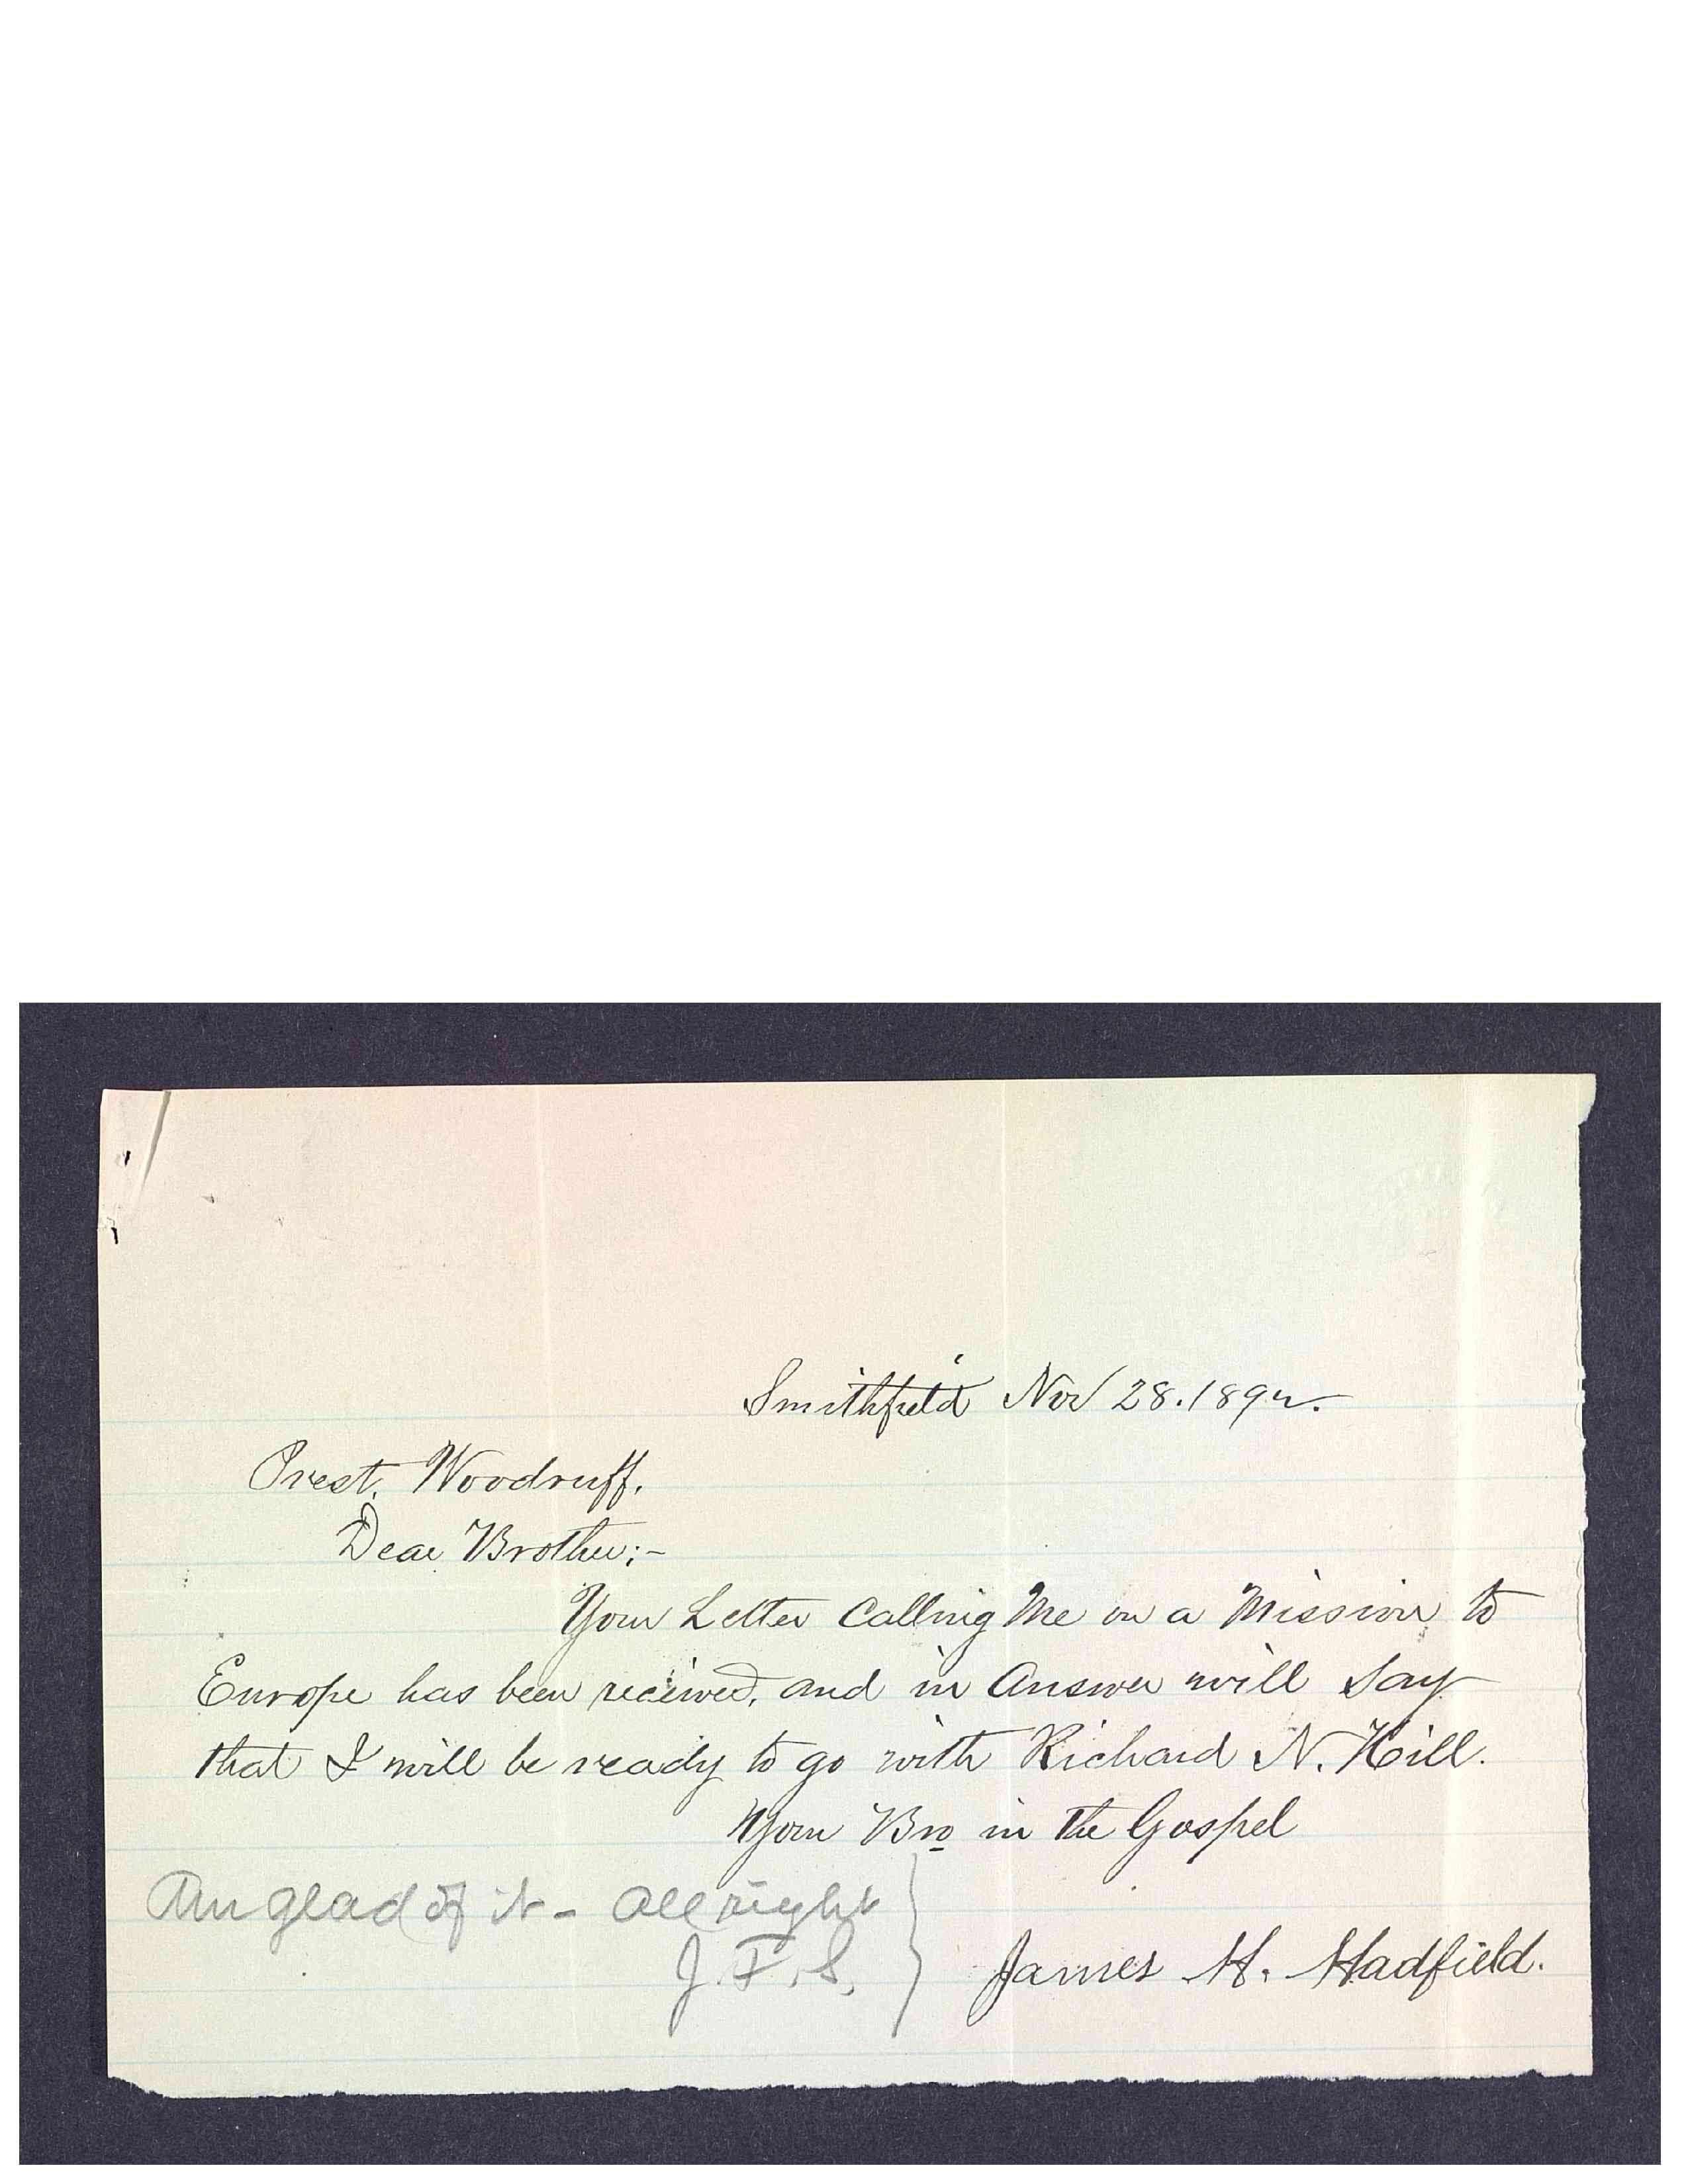 Smithfield Nov 28. 1892.
Prest. Woodruff.
Dear Brother;-
Your Letter Calling Me on a Mission to
Europe has been recieived, and in Answer will Say
that I will be ready to go with Richard N. Hill.
Your Bro in the Gospel
Am glad of it - All right
J. F. S.
James H. Hadfield.